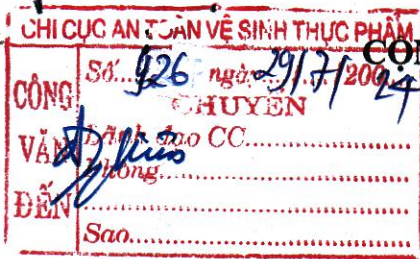 CHI CỤC AN TOÀN VỆ SINH THỰC PHẨM
CỘN
CÔNG
VĂN
ĐẾN
Số... 926 ngày 29/7/2024
CHUYỂN
Lãnh đạo CC
Phòng
Sao